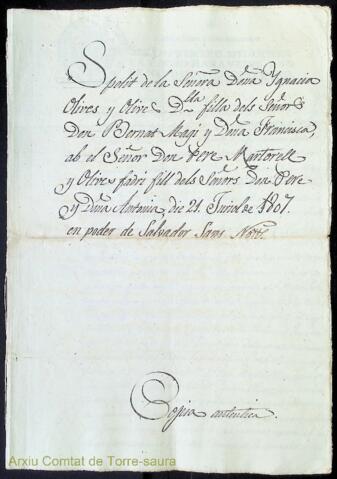 Spolit de la Señora Dña Ygnacia
Olives y Olives D.lla filla dels Señors
Don Bernat Magi y Dña Francisca,
ab el Señor Don Pere Martorell
y Olives fadri fill dels Señors Don Pere
y Dña Antonia, die 21 Juriol de 1807.
en poder de Salvador Sans Nott.
Coppia autentica.
Arxiu Comtat de Torre-saura